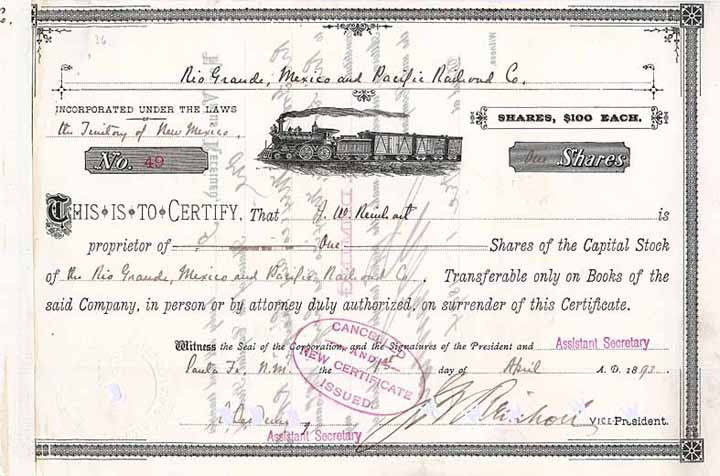 Rio Grande, Mexico and Pacific Railroad Co.
INCORPORATED UNDER THE LAWS
the Territory of New Mexico.
SHARES, $100 EACH.
No. 49
One Shares
THIS IS TO CERTIFY, That J. W. Reinhart is
proprietor of One Shares of the Capital Stock
of the Rio Grande, Mexico and Pacific Railroad Co. Transferable only on Books of the
said Company, in person or by attorney duly authorized, on surrender of this Certificate.
Witness the Seal of the Corporation, and the Signatures of the President and Assistant Secretary
Santa Fe, N.M. the 1st day of April A. D. 1893
CANCELLED
AND
NEW CERTIFICATE
ISSUED.
Assistant Secretary
J. W. Reinhart VICE-President.